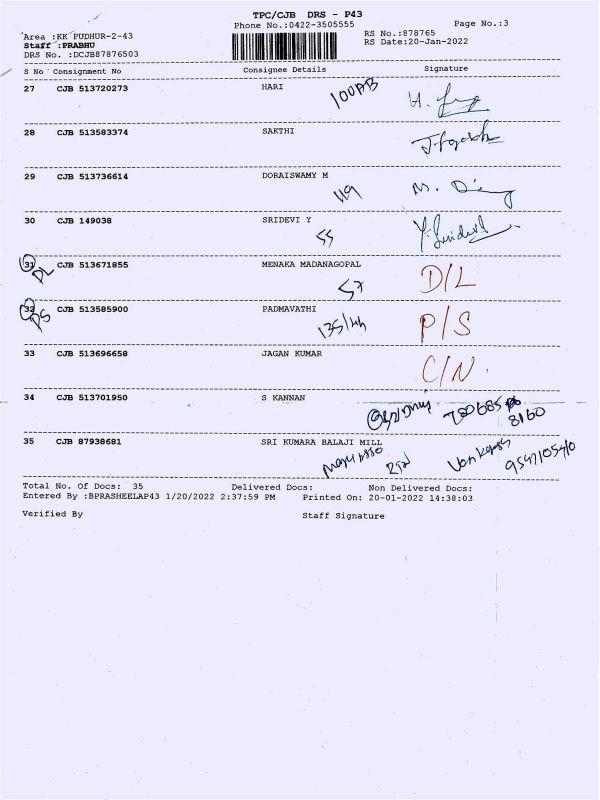 TPC/CJB DRS - P43
Phone No.:0422-3505555 Page No.:3
Area :KK PUDHUR-2-43 RS No.:878765
Staff :PRABHU RS Date:20-Jan-2022
DRS No. :DCJB87876503
S No Consignment No Consignee Details Signature
27 CJB 513720273 HARI
28 CJB 513583374 SAKTHI
29 CJB 513736614 DORAISWAMY M
119 M.
30 CJB 149038 SRIDEVI Y
55
31 CJB 513671855 MENAKA MADANAGOPAL
DL 57 D/L
32 CJB 513585900 PADMAVATHI
PS 135/44 P/S
33 CJB 513696658 JAGAN KUMAR
C/N.
34 CJB 513701950 S KANNAN
8160
35 CJB 87938681 SRI KUMARA BALAJI MILL
Total No. Of Docs: 35 Delivered Docs: Non Delivered Docs:
Entered By :BPRASHEELAP43 1/20/2022 2:37:59 PM Printed On: 20-01-2022 14:38:03
Verified By Staff Signature